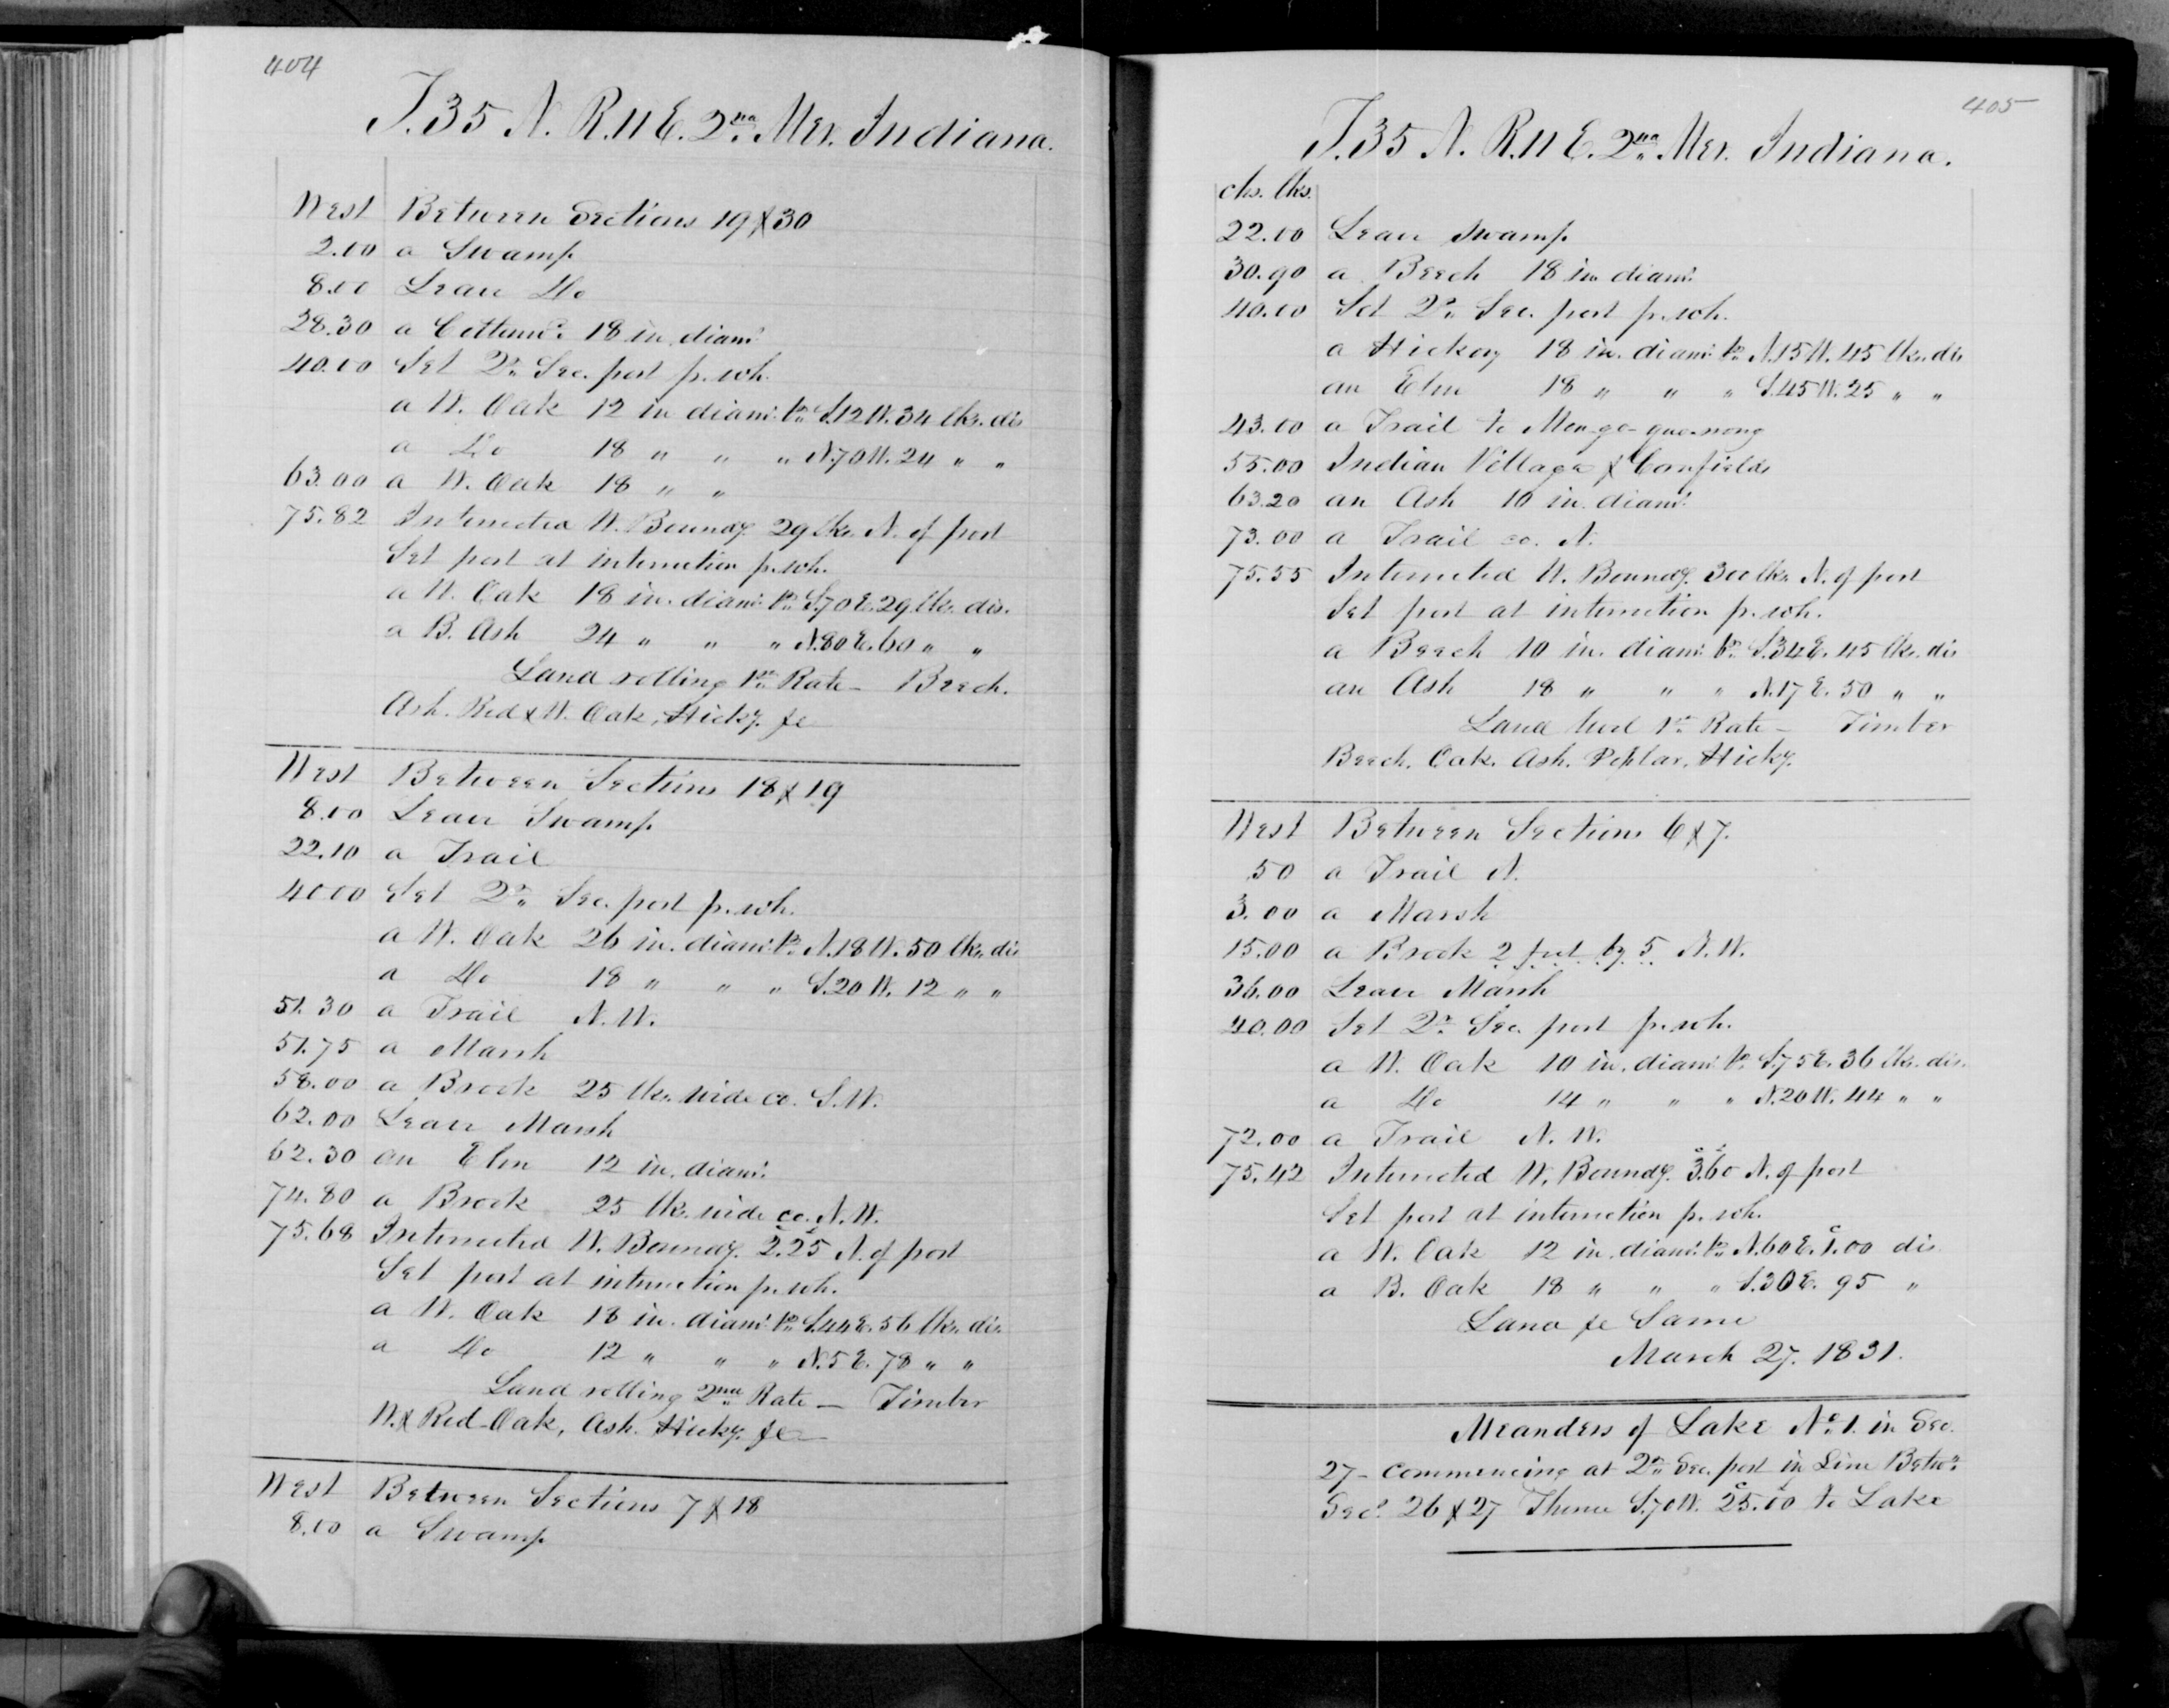 404
T. 35 N. R. 11 E. 2nd Mer. Indiana.
West Between Sections 19 & 30
2.00 a Swamp
8.00 Leave Do
28.30 a Cottonwd. 18 in. diamr.
40.00 Set Qr. Sec. post p. wh.
a W. Oak 12 in diamr. br. S. 12 W. 34 lks. dis
a Do 18 " " " N. 70 W. 24 " "
63.00 a W. Oak 18 " "
75.82 Intersected W. Boundy. 29 lks. N. of post
Set post at intersection p. wh.
a W. Oak 18 in. diamr. br. S. 70 E. 29 lks. dis.
a B. Ash 24 " " " N. 80 E. 60 " "
Land rolling 1st Rate — Beech.
Ash. Red & W. Oak, Hicky. &c
West Between Sections 18 & 19
8.00 Leave Swamp
22.10 a Trail
40.00 Set Qr. Sec. post p. wh.
a W. Oak 26 in. diamr. br. N. 18 W. 50 lks. dis
a Do 18 " " " S. 20 W. 12 " "
51.30 a Trail N. W.
51.75 a Marsh
58.00 a Brook 25 lks. wide co. S. W.
62.00 Leave Marsh
62.30 an Elm 12 in. diamr.
74.80 a Brook 25 lks. wide co. N. W.
75.68 Intersected W. Boundy. 2.25 N. of post
Set post at intersection p. wh.
a W. Oak 18 in. diamr. br. S. 44 E. 56 lks. dis.
a Do 12 " " " N. 5 E. 78 " "
Land rolling 2nd Rate — Timber
W. & Red Oak, Ash. Hicky. &c —
West Between Sections 7 & 18
8.00 a Swamp
405
T. 35 N. R. 11 E. 2nd Mer. Indiana.
chs. lks.
22.00 Leave Swamp
30.90 a Beech 18 in diamr.
40.00 Set Qr. Sec. post p. wh.
a Hickory 18 in. diamr. br. N. 15 W. 45 lks. dis
an Elm 18 " " " S. 45 W. 25 " "
43.00 a Trail to Mon-go-qua-nong
55.00 Indian Village & Cornfields
63.20 an Ash 10 in. diamr.
73.00 a Trail co. N.
75.55 Intersected W. Boundy. 300 lks. N. of post
Set post at intersection p. wh.
a Beech 10 in. diamr. br. S. 34 E. 45 lks. dis
an Ash 18 " " " N. 17 E. 50 " "
Land level 1st Rate — Timber
Beech. Oak. Ash. Poplar. Hicky.
West Between Sections 6 & 7.
50 a Trail N.
3.00 a Marsh
15.00 a Brook 2 feet by 5 N. W.
36.00 Leave Marsh
40.00 Set Qr. Sec. post p. wh.
a W. Oak 10 in. diamr. br. S. 75 E. 36 lks. dis.
a Do 14 " " " N. 20 W. 44 " "
72.00 a Trail N. W.
75.42 Intersected W. Boundy. 3.60 N. of post
Set post at intersection p. wh.
a W. Oak 12 in. diamr. br. N. 60 E. 1.00 dis
a B. Oak 18 " " " S. 30 E. 95 "
Land &c Same
March 27. 1831.
Meanders of Lake No. 1. in Sec.
27 — Commencing at Qr. Sec. post in Line Betwn.
Secs. 26 & 27 Thence S. 70 W. 25.00 to Lake